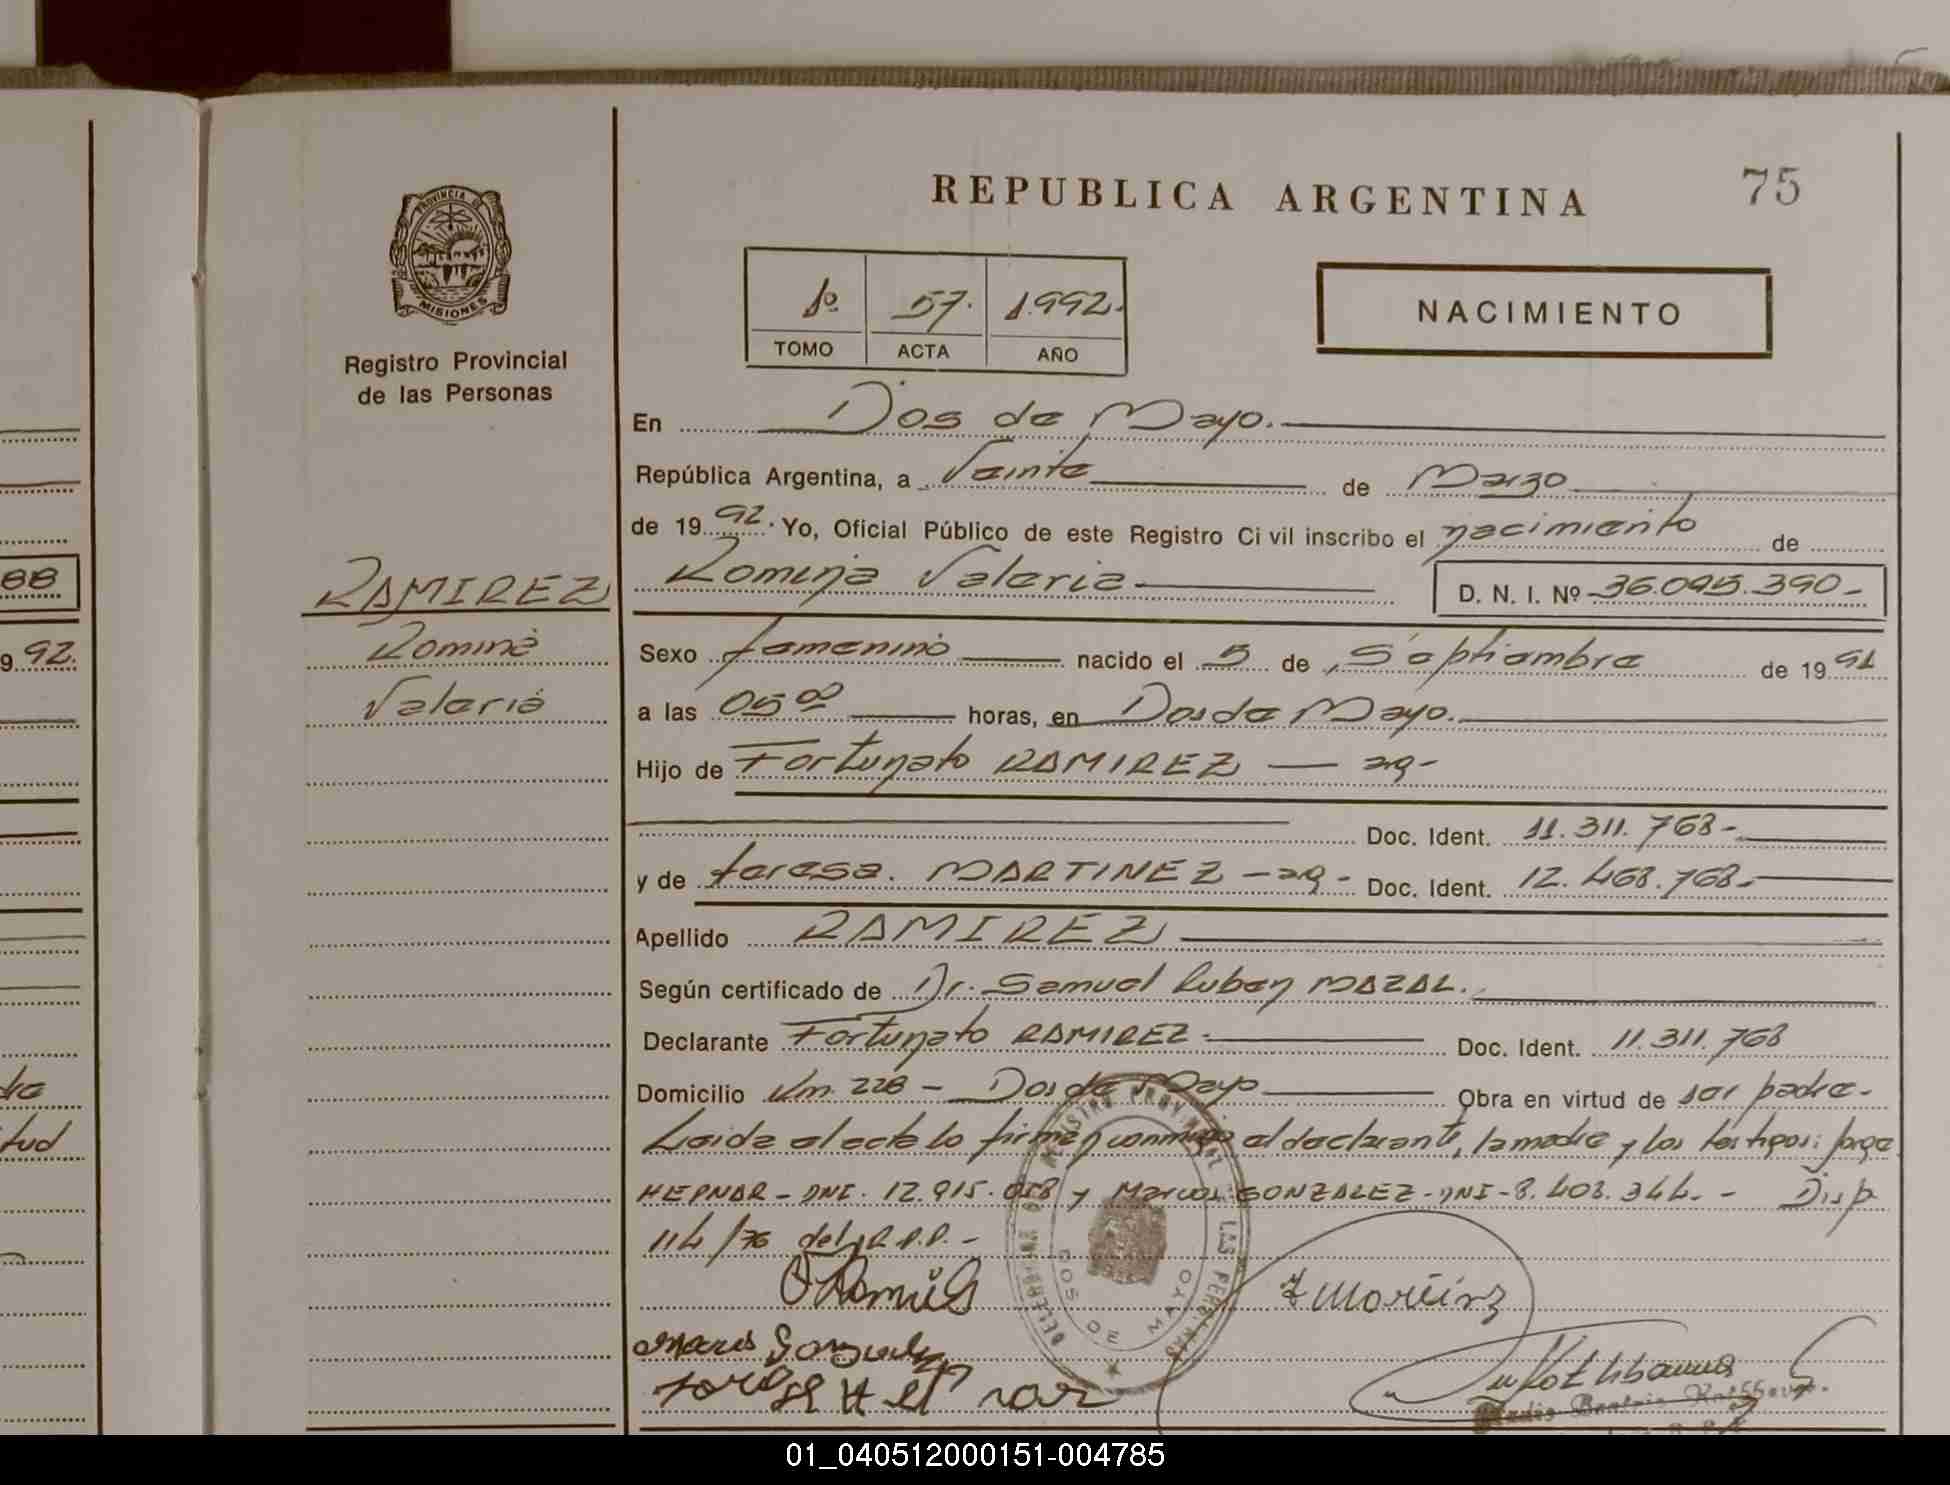 REPUBLICA ARGENTINA
75
PROVINCIA DE
MISIONES
Registro Provincial
de las Personas
1º 57. 1.992.
TOMO ACTA AÑO
NACIMIENTO
En Dos de Mayo.
República Argentina, a Veinte de Marzo
de 1992. Yo, Oficial Público de este Registro Civil inscribo el nacimiento de
Romina Valeria D. N. I. Nº 36.095.390-
RAMIREZ
Romina
Valeria
88
9 92.
Sexo femenino nacido el 5 de Septiembre de 1991
a las 05 00 horas, en Dos de Mayo.
Hijo de Fortunato RAMIREZ — arg-
Doc. Ident. 11.311.768-
y de teresa. MARTINEZ -arg- Doc. Ident. 12.468.768.-
Apellido RAMIREZ
Según certificado de Dr. Samuel Ruben MAZAL.
Declarante Fortunato RAMIREZ- Doc. Ident. 11.311.768
Domicilio Km. 228 - Dos de Mayo Obra en virtud de ser padre-
tud
Leida el acta lo firman conmigo el declarante, la madre y los testigos: Jorge
HEPNAR-DNI. 12.915.058 y Marcos GONZALEZ-DNI-8.403.344.- Disp
114/76 del R.P.P.-
DOS DE MAYO
01_040512000151-004785